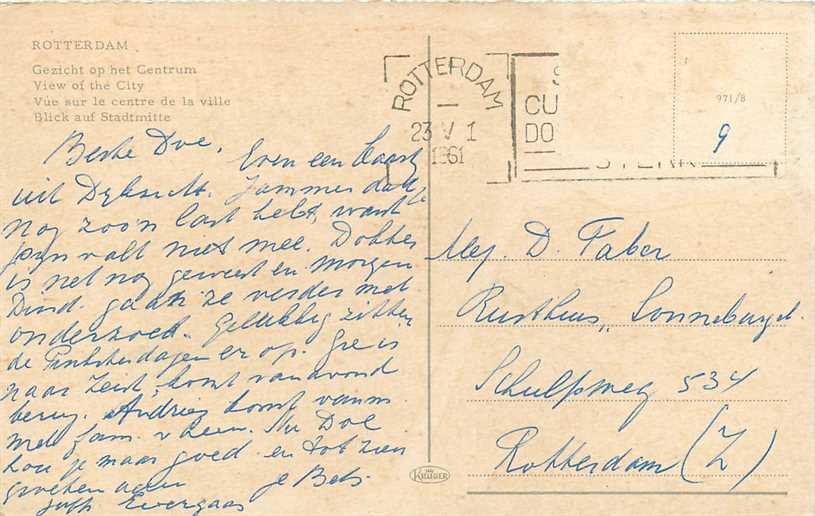 ROTTERDAM
Gezicht op het Centrum
View of the City
Vue sur le centre de la ville
Blick auf Stadtmitte
ROTTERDAM
23 V 1
1961
CU
DO
971/8
9
Beste Doe,
Even een kaart
uit Dijkzicht. Jammer dat je
nog zoo'n last hebt, want
pijn valt niet mee. Dokter
is net nog geweest en morgen
Dinsd. gaan ze verder met
onderzoek. Gelukkig zitten
de Pinksterdagen er op. Gre is
naar Zeist, komt vanavond
terug. Andries komt vanm.
met fam. Nu Doe
hou je maar goed en tot ziens
groeten aan
je Bets
Mej. D. Faber
Rusthuis, Sonneburgh.
Schulpweg 534
Rotterdam (Z)
KRUGER